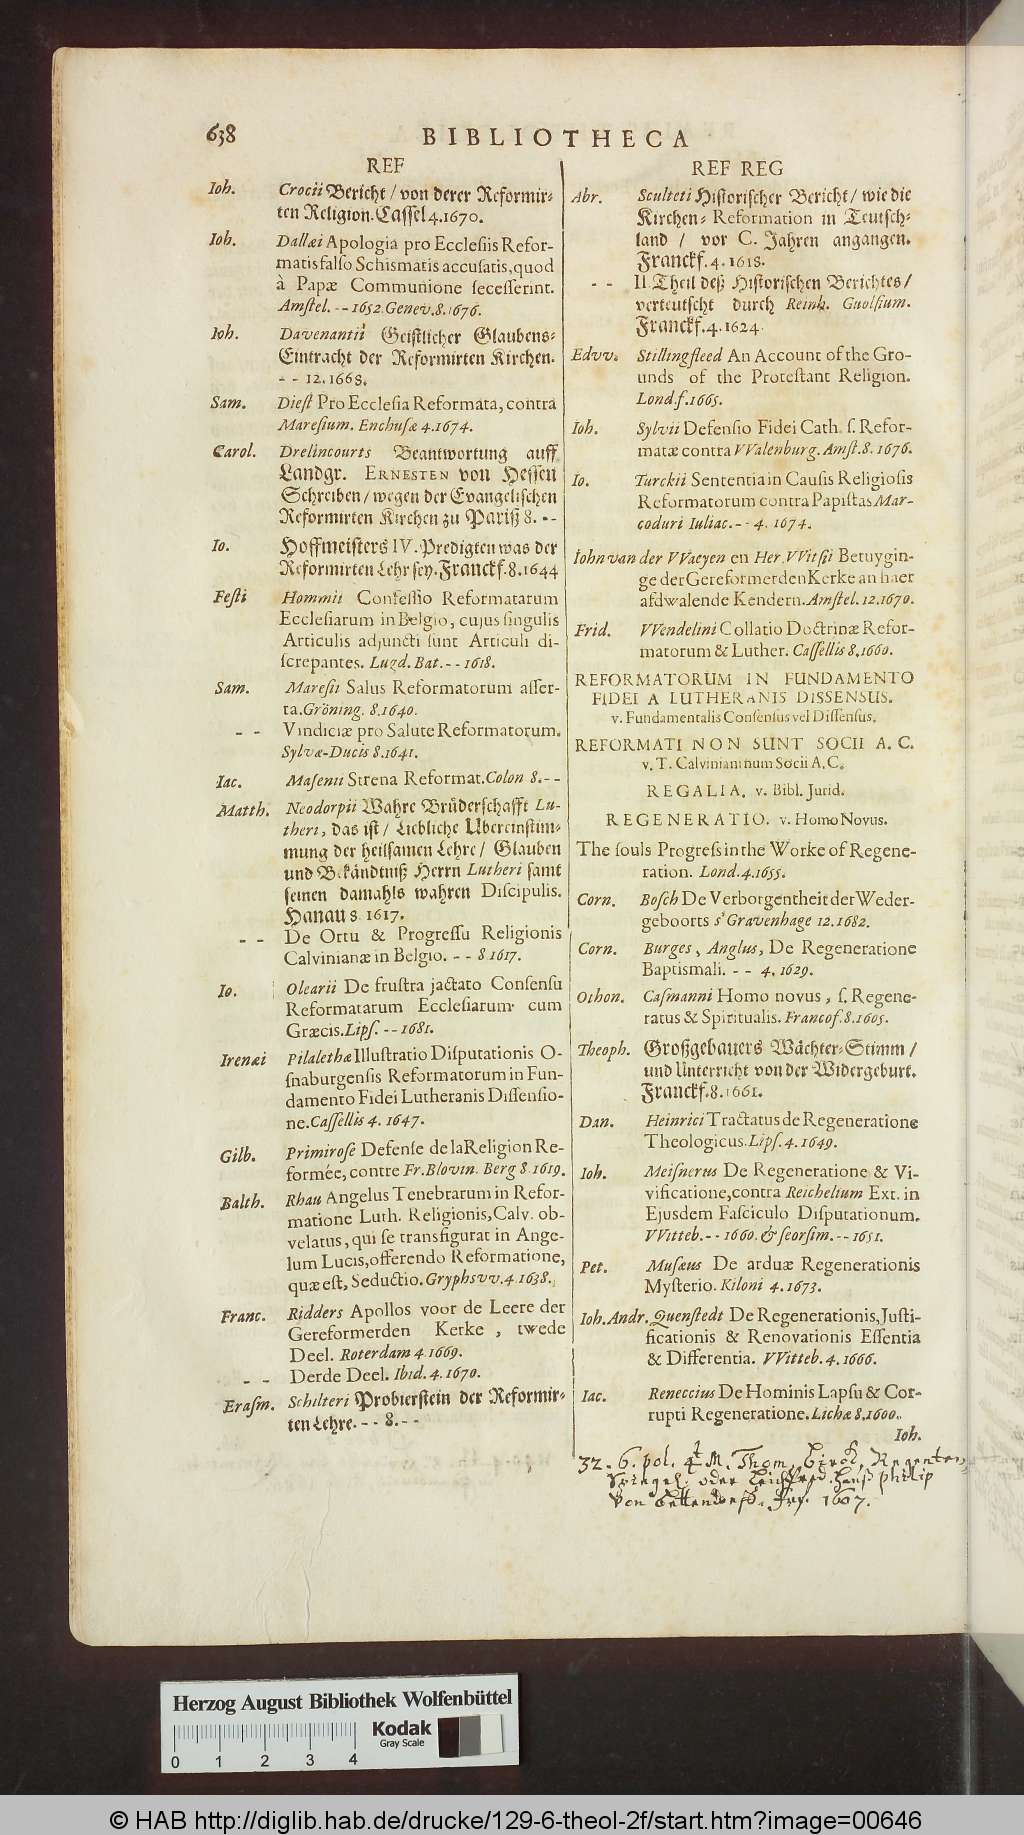 638
BIBLIOTHECA
REF
Ioh. Crocii Bericht / von derer Reformir-
ten Religion. Cassel 4. 1670.
Ioh. Dallæi Apologia pro Ecclesiis Refor-
matis falso Schismatis accusatis, quod
â Papæ Communione secesserint.
Amstel. -- 1652. Genev. 8. 1676.
Ioh. Davenantii Geistlicher Glaubens-
Eintracht der Reformirten Kirchen.
-- 12. 1668.
Sam. Diest Pro Ecclesia Reformata, contra
Maresium. Enchusæ 4. 1674.
Carol. Drelincourts Beantwortung auff
Landgr. ERNESTEN von Hessen
Schreiben / wegen der Evangelischen
Reformirten Kirchen zu Pariß 8. --
Io. Hoffmeisters IV. Predigten was der
Reformirten Lehr sey. Franckf. 8. 1644
Festi Hommii Confessio Reformatarum
Ecclesiarum in Belgio, cujus singulis
Articulis adjuncti sunt Articuli di-
screpantes. Lugd. Bat. -- 1618.
Sam. Maresii Salus Reformatorum asser-
ta. Gröning. 8. 1640.
-- Vindiciæ pro Salute Reformatorum.
Sylvæ-Ducis 8. 1641.
Iac. Masenii Strena Reformat. Colon 8. --
Matth. Neodorpii Wahre Brüderschafft Lu-
theri, das ist / Liebliche Ubereinstim-
mung der heilsamen Lehre / Glauben
und Bekändtniß Herrn Lutheri samt
seinen damahls wahren Discipulis.
Hanau 8. 1617.
-- De Ortu & Progressu Religionis
Calvinianæ in Belgio. -- 8 1617.
Io. Olearii De frustra jactato Consensu
Reformatarum Ecclesiarum cum
Græcis. Lips. -- 1681.
Irenæi Pilalethæ Illustratio Disputationis O-
snaburgensis Reformatorum in Fun-
damento Fidei Lutheranis Dissensio-
ne. Cassellis 4. 1647.
Gilb. Primirose Defense de la Religion Re-
formée, contre Fr. Blovin. Berg 8. 1619.
Balth. Rhau Angelus Tenebrarum in Refor-
matione Luth. Religionis, Calv. ob-
velatus, qui se transfigurat in Ange-
lum Lucis, offerendo Reformatione,
quæ est, Seductio. Gryphsvv. 4. 1638.
Franc. Ridders Apollos voor de Leere der
Gereformerden Kerke, twede
Deel. Roterdam 4. 1669.
-- Derde Deel. Ibid. 4. 1670.
Erasm. Schilteri Probierstein der Reformir-
ten Lehre. -- 8. --
REF REG
Abr. Sculteti Historischer Bericht / wie die
Kirchen-Reformation in Teutsch-
land / vor C. Jahren angangen.
Franckf. 4. 1618.
-- II. Theil deß Historischen Berichtes /
verteutscht durch Reinh. Guolfium.
Franckf. 4. 1624.
Edvv. Stillingfleed An Account of the Gro-
unds of the Protestant Religion.
Lond. f. 1665.
Ioh. Sylvii Defensio Fidei Cath. s. Refor-
matæ contra VValenburg. Amst. 8. 1676.
Io. Turckii Sententia in Causis Religiosis
Reformatorum contra Papistas Mar-
coduri Iuliac. -- 4. 1674.
Iohn van der VVaeyen en Her. VVitsii Betuygin-
ge der Gereformerden Kerke an haer
afdwalende Kendern. Amstel. 12. 1670.
Frid. VVendelini Collatio Doctrinæ Refor-
matorum & Luther. Cassellis 8. 1660.
REFORMATORUM IN FUNDAMENTO
FIDEI A LUTHERANIS DISSENSUS.
v. Fundamentalis Consensus vel Dissensus.
REFORMATI NON SUNT SOCII A. C.
v. T. Calvinianinum Socii A. C.
REGALIA. v. Bibl. Jurid.
REGENERATIO. v. Homo Novus.
The souls Progress in the Worke of Regene-
ration. Lond. 4. 1655.
Corn. Bosch De Verborgentheit der Weder-
geboorts s'Gravenhage 12. 1682.
Corn. Burges, Anglus, De Regeneratione
Baptismali. -- 4. 1629.
Othon. Casmanni Homo novus, s. Regene-
ratus & Spiritualis. Francof. 8. 1605.
Theoph. Großgebauers Wächter-Stimm /
und Unterricht von der Widergeburt.
Franckf. 8. 1661.
Dan. Heinrici Tractatus de Regeneratione
Theologicus. Lips. 4. 1649.
Ioh. Meisnerus De Regeneratione & Vi-
vificatione, contra Reichelium Ext. in
Ejusdem Fasciculo Disputationum.
VVitteb. -- 1660. & seorsim. -- 1651.
Pet. Musæus De arduæ Regenerationis
Mysterio. Kiloni 4. 1673.
Ioh. Andr. Quenstedt De Regenerationis, Justi-
ficationis & Renovationis Essentia
& Differentia. VVitteb. 4. 1666.
Iac. Reneccius De Hominis Lapsu & Cor-
rupti Regeneratione. Lichæ 8. 1600.
Ioh.
32. 6. pol. 4 M. Thom. Birck, Regenten
Spiegel. oder Leichpred. Hanß philip
Von Bettendorf. 1607.
Herzog August Bibliothek Wolfenbüttel
Kodak
Gray Scale
0 1 2 3 4
© HAB http://diglib.hab.de/drucke/129-6-theol-2f/start.htm?image=00646